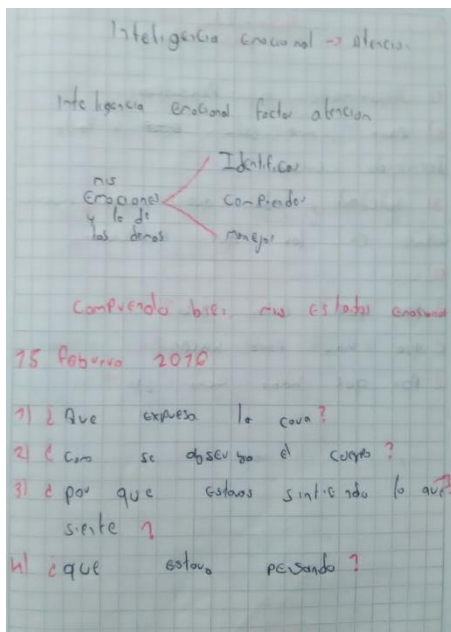 Inteligencia emocional → atencio
Inteligencia emocional factor atencion
Identificar
mis
Emociones
y lo de
los demas
Comprender
manejar
Comprendo bien mis estados emosional
15 Feburvo 2016
1) ¿Que expresa la cara?
2) ¿Como se observa el cuerpo?
3) ¿por que estavos sintiendo lo que
siente?
4) ¿que estavo pensando?